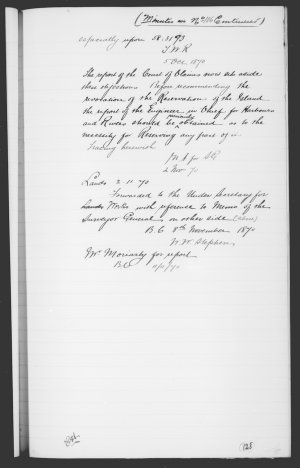 (Minutes on No 116 Continued)
especially upon 58.3193
J.W.R
5 Oct 1870
The report of the Court of Claims now sets aside
these objections. Before recommending the
revocation of the Reservation of the Island
the report of the Engineer in Chief for Harbours
and Rivers should be obtained as to the
necessity for Reserving any part of it.
Tracing herewith
for SG
2 Nov 70
Lands 2.11.70
Forwarded to the Under Secretary for
Lands Works with reference to Memo of the
Surveyor General, on other side (above)
B.C 8th November 1870
W.W. Stephen
Mr Moriarty for report
B.C 11/11/70
(125